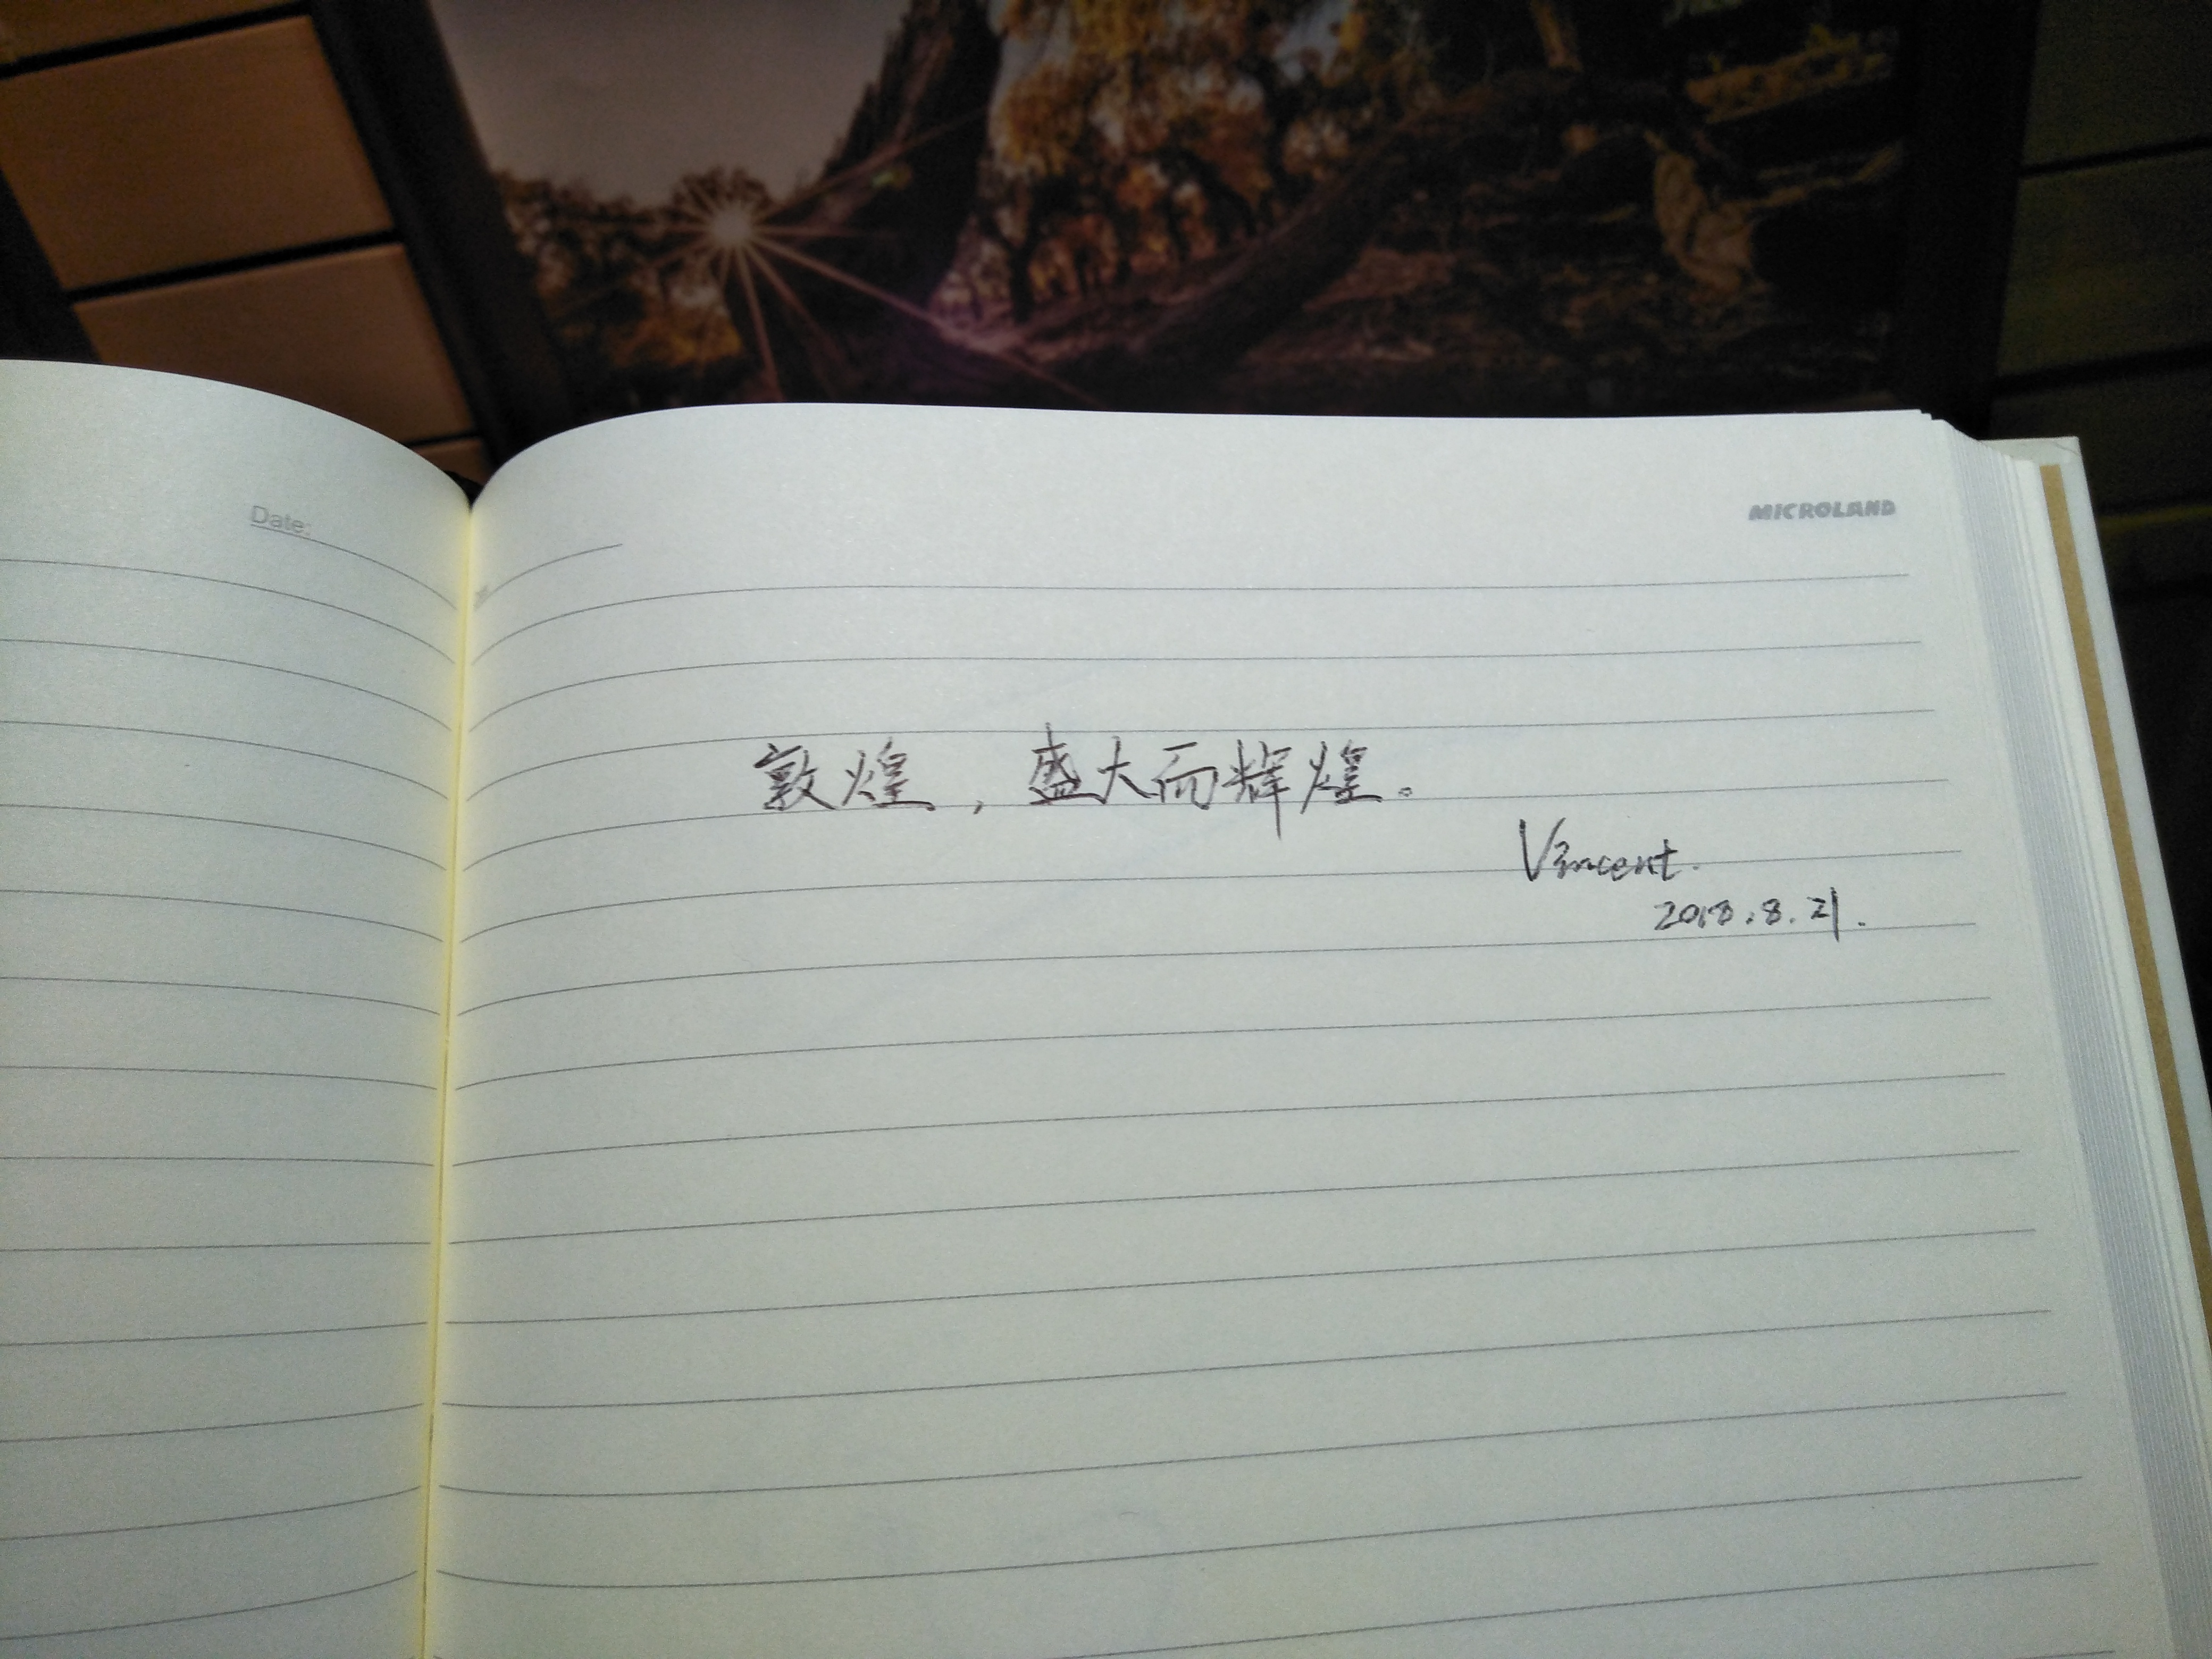 Date:
MICROLAND
敦煌，盛大而辉煌。
Vincent.
2018.8.21.